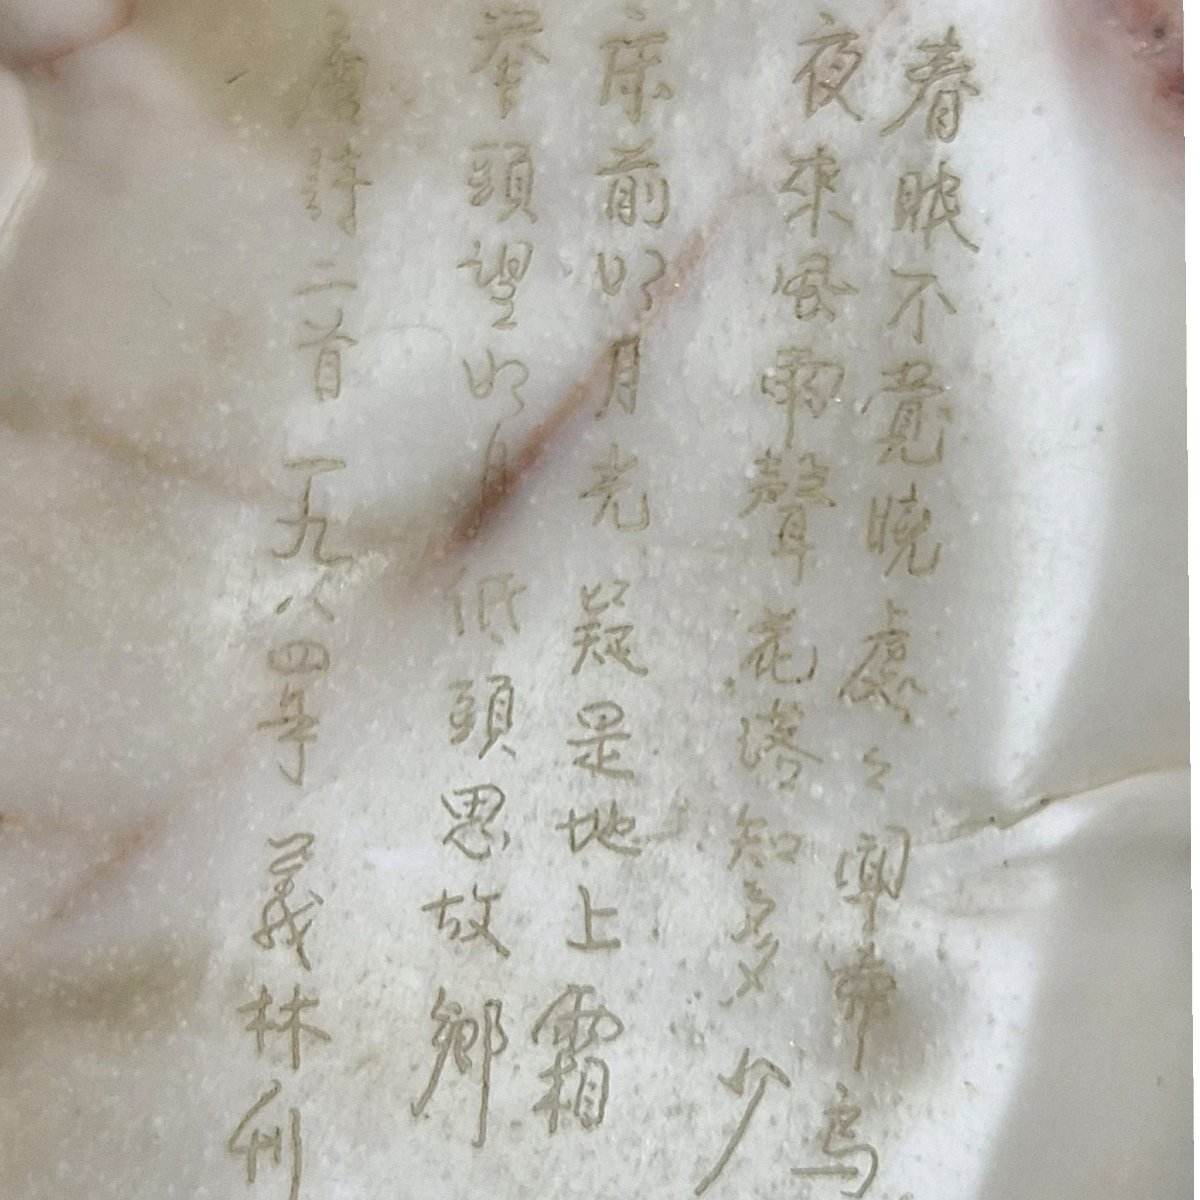 春眠不覚曉處々聞啼鳥
夜來風雨聲花落知多少
床前明月光疑是地上霜
挙頭望明月低頭思故鄉
唐詩二首 一九八四年 義林刊